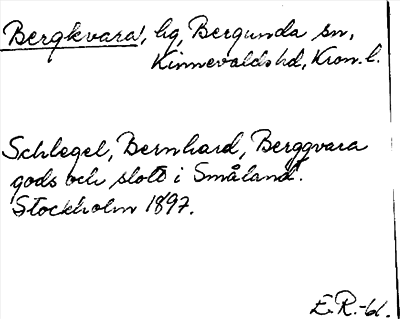 Bergkvara, hg, Bergunda sn,
Kinnevaldshd, Kron. l.
Schlegel, Bernhard, Berggvara
gods och slott i Småland.
Stockholm 1897.
E.R.-61.